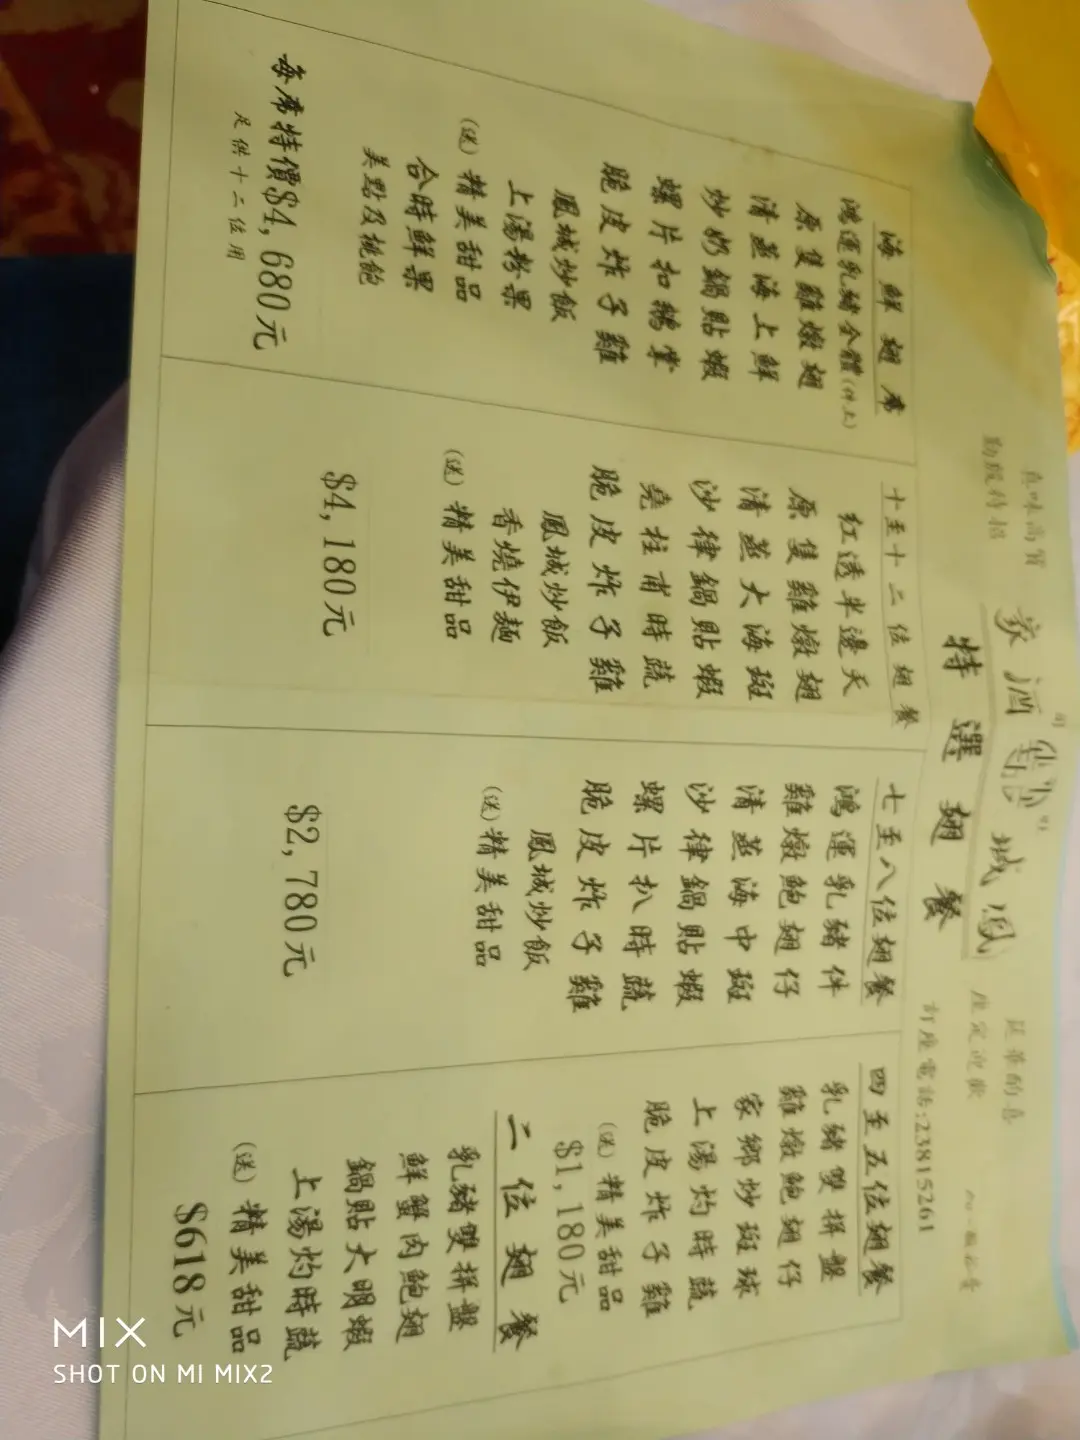 特選翅餐
訂座電話:23815261
海鮮翅席
鴻運乳豬全體(件上)
原隻雞燉翅
清蒸海上鮮
炒奶鍋貼蝦
螺片扣鵝掌
脆皮炸子雞
鳳城炒飯
上湯粉果
(送)精美甜品
合時鮮果
美點及桃飽
每席特價$4,680元
足供十二位用
十至十二位翅餐
紅透半邊天
原隻雞燉翅
清蒸大海斑
沙律鍋貼蝦
堯柱甫時蔬
脆皮炸子雞
鳳城炒飯
香燒伊麵
(送)精美甜品
$4,180元
七至八位翅餐
鴻運乳豬件
雞燉鮑翅仔
清蒸海中斑
沙律鍋貼蝦
螺片扒時蔬
脆皮炸子雞
鳳城炒飯
(送)精美甜品
$2,780元
四至五位翅餐
乳豬雙拼盤
雞燉鮑翅仔
家鄉炒斑球
上湯灼時蔬
脆皮炸子雞
(送)精美甜品
$1,180元
二位翅餐
乳豬雙拼盤
鮮蟹肉鮑翅
鍋貼大明蝦
上湯灼時蔬
(送)精美甜品
$618元
MIX
SHOT ON MI MIX2